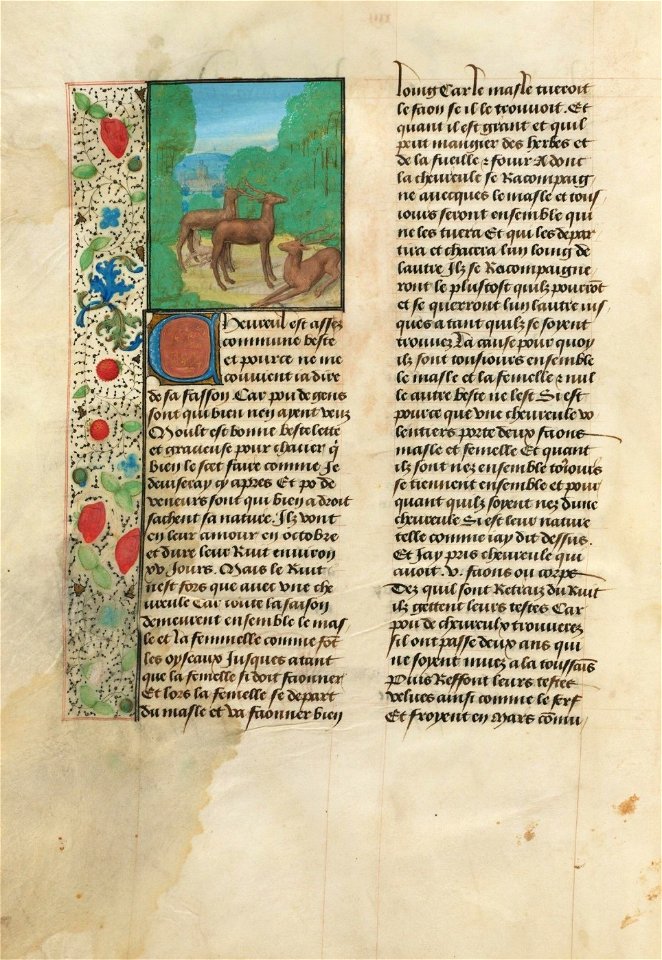 Cheureul est assez
commune beste
et pource ne me
couuient ia dire
de sa fasson Car pou de gens
sont qui bien nen ayent veuz
Moult est bonne bestelette
et gracieuse pour chacier q̄
bien le scet faire comme Je
deuiseray cy apres Et po de
veneurs sont qui bien a droit
sachent sa nature. Ilz vont
en leur amour en octobre
et dure leur Ruit enuiron
xv. Jours. Mais le Ruit
nest fors que auec vne che
ureule Car toute la saison
demeurent ensemble le mas,
le et la femmelle comme font
les oyseaux Jusques a tant
que la femelle si doit faonner
Et lors la femelle se depart
du masle et va faonner bien
loing Car le masle tueroit
le faon se il le trouuoit. Et
quant il est grant et quil
peut mangier des herbes et
de la fueille Adont
la cheureule se Racompaig
ne auecques le masle et tous
iours seront ensemble qui
ne les tuera Et qui les depar
tira et chacera lun loing de
lautre Ilz se Racompaigne
ront le plustost quilz pourrōt
et se querront lun lautre ius
ques a tant quilz se soyent
trouuez La cause pour quoy
ilz sont tousiours ensemble
le masle et la femelle et nul
le autre beste ne lest Si est
pource que vne cheureule vo
lentiers porte deux faons
masle et femelle Et quant
ilz sont nez ensemble toriouis
se tiennent ensemble et pour
quant quilz soyent nez dune
cheureule Si est leur nature
telle comme iay dit dessus.
Et Jay pris cheureule qui
auoit .v. faons ou corps
Dez quil sont Retraiz du Ruit
ilz gettent leurs testes Car
pou de cheureulx trouuerez
sil ont passe deux ans qui
ne soyent muez a la toussains
Puis Reffont leurs testes
velues ainsi comme le serf
Et froyent en Mars cōmu